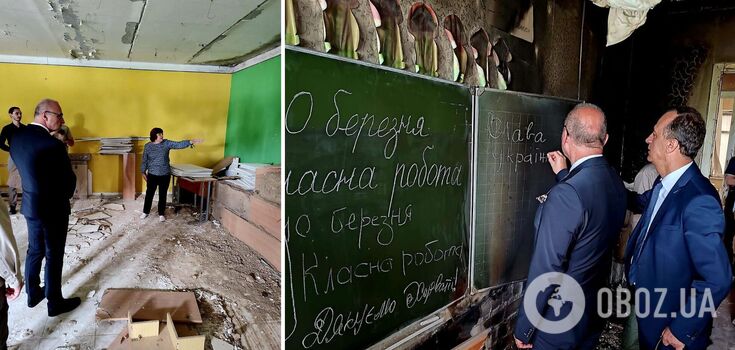 О березня
ласна робота
о березня
Класна робота
Дякуємо Хорватії!
Слава
Україні
OBOZ.UA